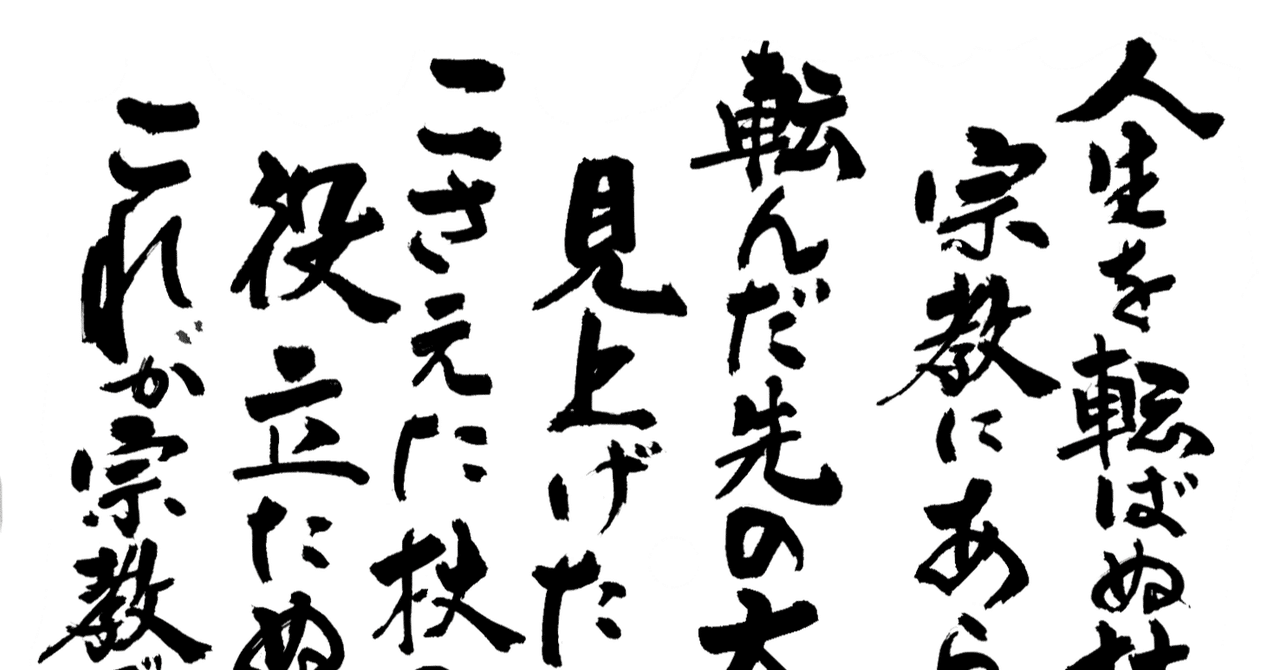 人生を転ばぬ杖
宗教にあら
転んだ先の大
見上げた
ささえた杖の
役立たぬ
これが宗教